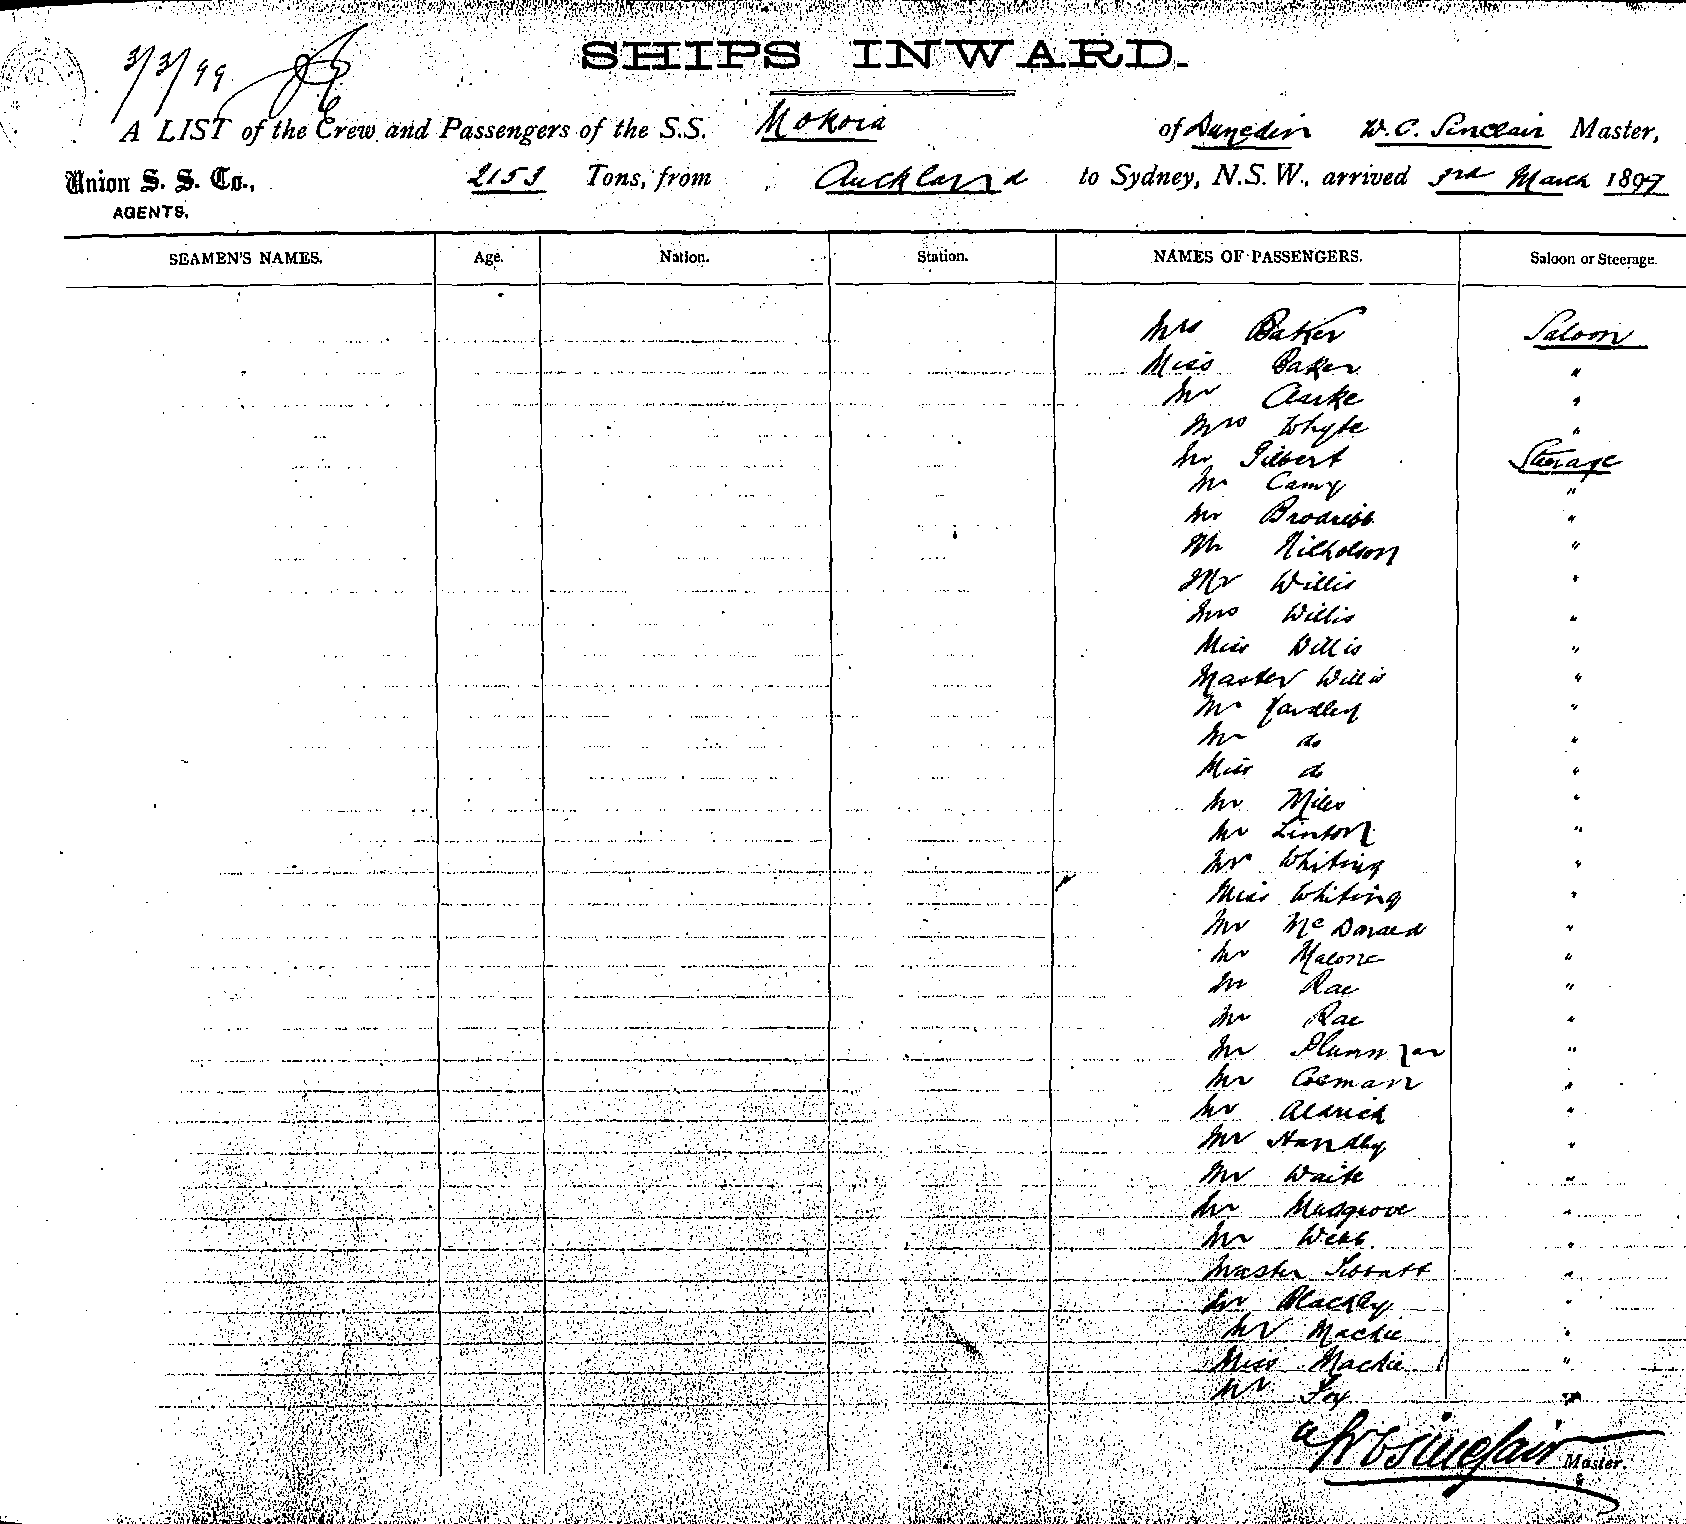 3/3/99
SHIPS INWARD.
A LIST of the Crew and Passengers of the S.S. Mokoia of Dunedin W. C. Sinclair Master,
Union S. S. Co., 2153 Tons, from Auckland to Sydney, N.S.W., arrived 3rd March 1899
AGENTS.
SEAMEN'S NAMES. Age. Nation. Station. NAMES OF PASSENGERS. Saloon or Steerage.
Mrs Baker Saloon
Miss Baker "
Mr Clarke "
Mrs Whyte "
Mr Gilbert Steerage
Mr "
Mr Brodribb "
Mr Nicholson "
Mr Willis "
Mrs Willis "
Miss Willis "
Master Willis "
Mr Yardley "
Mr do "
Miss do "
Mr Miles "
Mr Linton "
Mr Whiting "
Miss Whiting "
Mr McDonald "
Mr Malone "
Mr Rae "
Mr Rae "
Mr "
Mr Coleman "
Mr Aldrich "
Mr Handley "
Mr Waite "
Mr Musgrove "
Mr Webb "
Master "
Mr Blackley "
Mr Mackie "
Miss Mackie "
Mr Fox "
W C Sinclair Master.